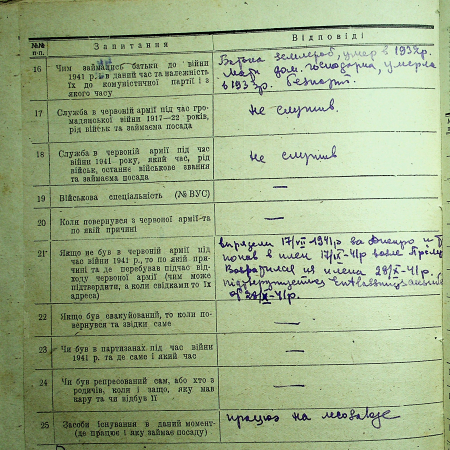 №№ п-п.
Запитання
Відповіді
16
Чим займались батьки до війни
1941 р. і в даний час та належність
їх до комуністичної партії і з
якого часу
Батько землероб, умер в 1932р.
Мати дом. господарка, умерла
в 193 р. Безпарт.
17
Служба в червоній армії під час гро-
мадянської війни 1917—22 років,
рід військ та займаєма посада
Не служив.
18
Служба в червоній армії під час
війни 1941 року, який час, рід
військ, останнє військове звання
та займаєма посада
Не служив
19
Військова спеціяльність (№ ВУС)
—
20
Коли повернувся з червоної армії-та
по якій причині
—
21
Якщо не був в червоній армії під
час війни 1941 р., то по якій при-
чині та де перебував підчас від-
ходу червоної армії (чим може
підтвердити, а коли свідками то їх
адреса)
17/VII 1941р за Днепро и
попав в плен 17/IX-41р возле
Возвратился из плена 28/X-41р.
28/X-41р.
22
Якщо був евакуйований, то коли по-
вернувся та звідки саме
—
23
Чи був в партизанах під час війни
1941 р. та де саме і який час
—
24
Чи був репресований сам, або хто з
родичів, коли і защо, яку мав
кару та чи відбув її
—
25
Засоби існування в даний момент-
(де працює і яку займає посаду)
працює на